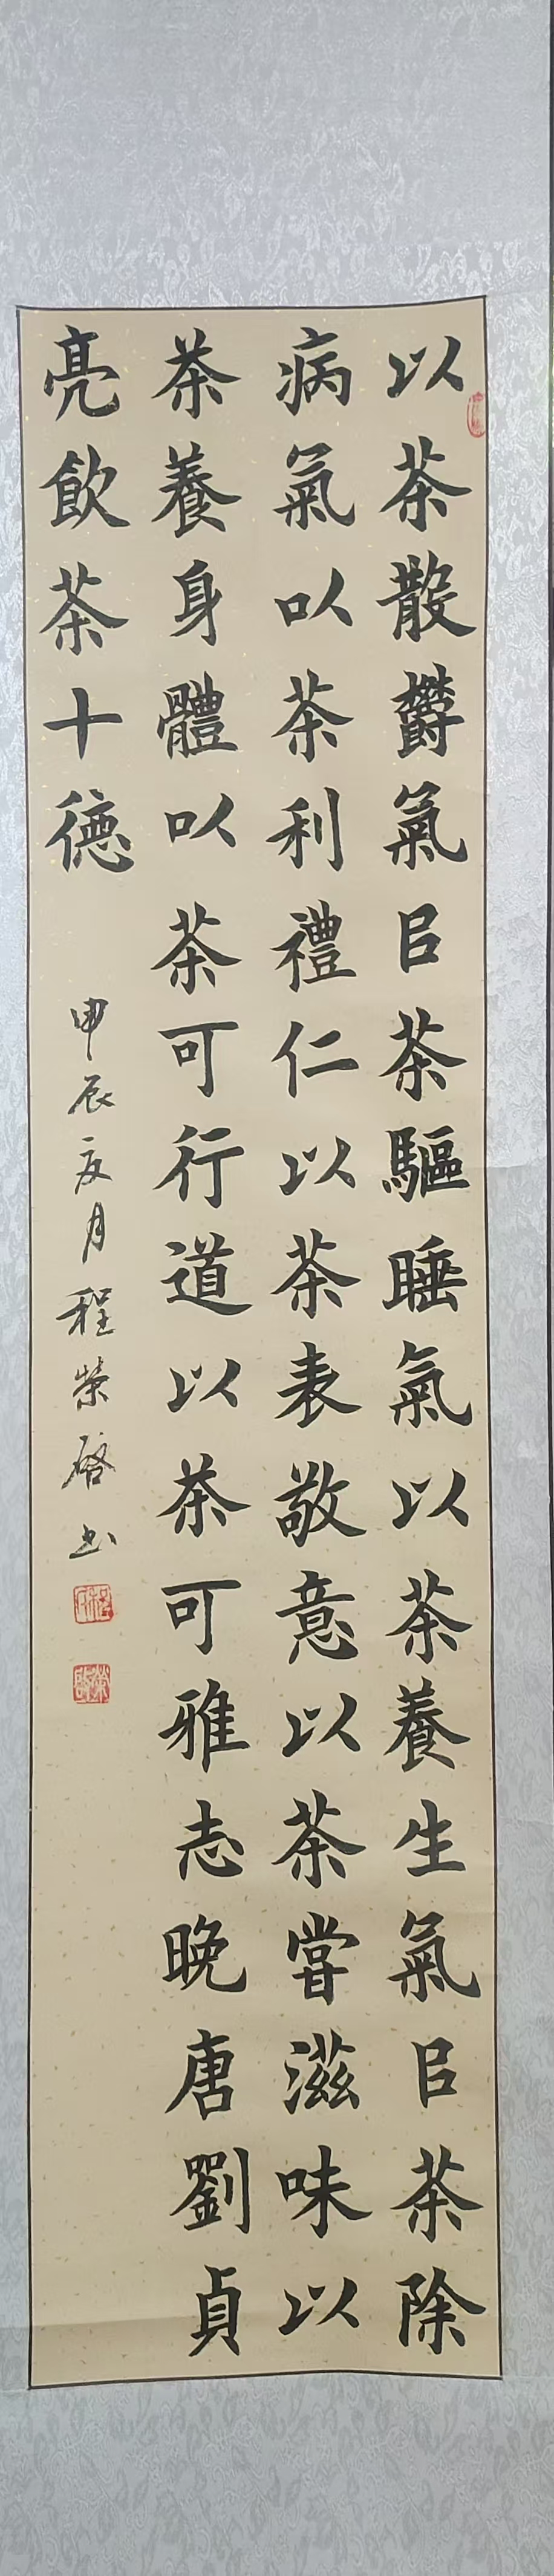 以茶散欝氣㠯茶驅睡氣以茶養生氣㠯茶除
病氣以茶利禮仁以茶表敬意以茶嘗滋味以
茶養身體以茶可行道以茶可雅志晚唐劉貞
亮飲茶十德
甲辰夏月程榮啓书